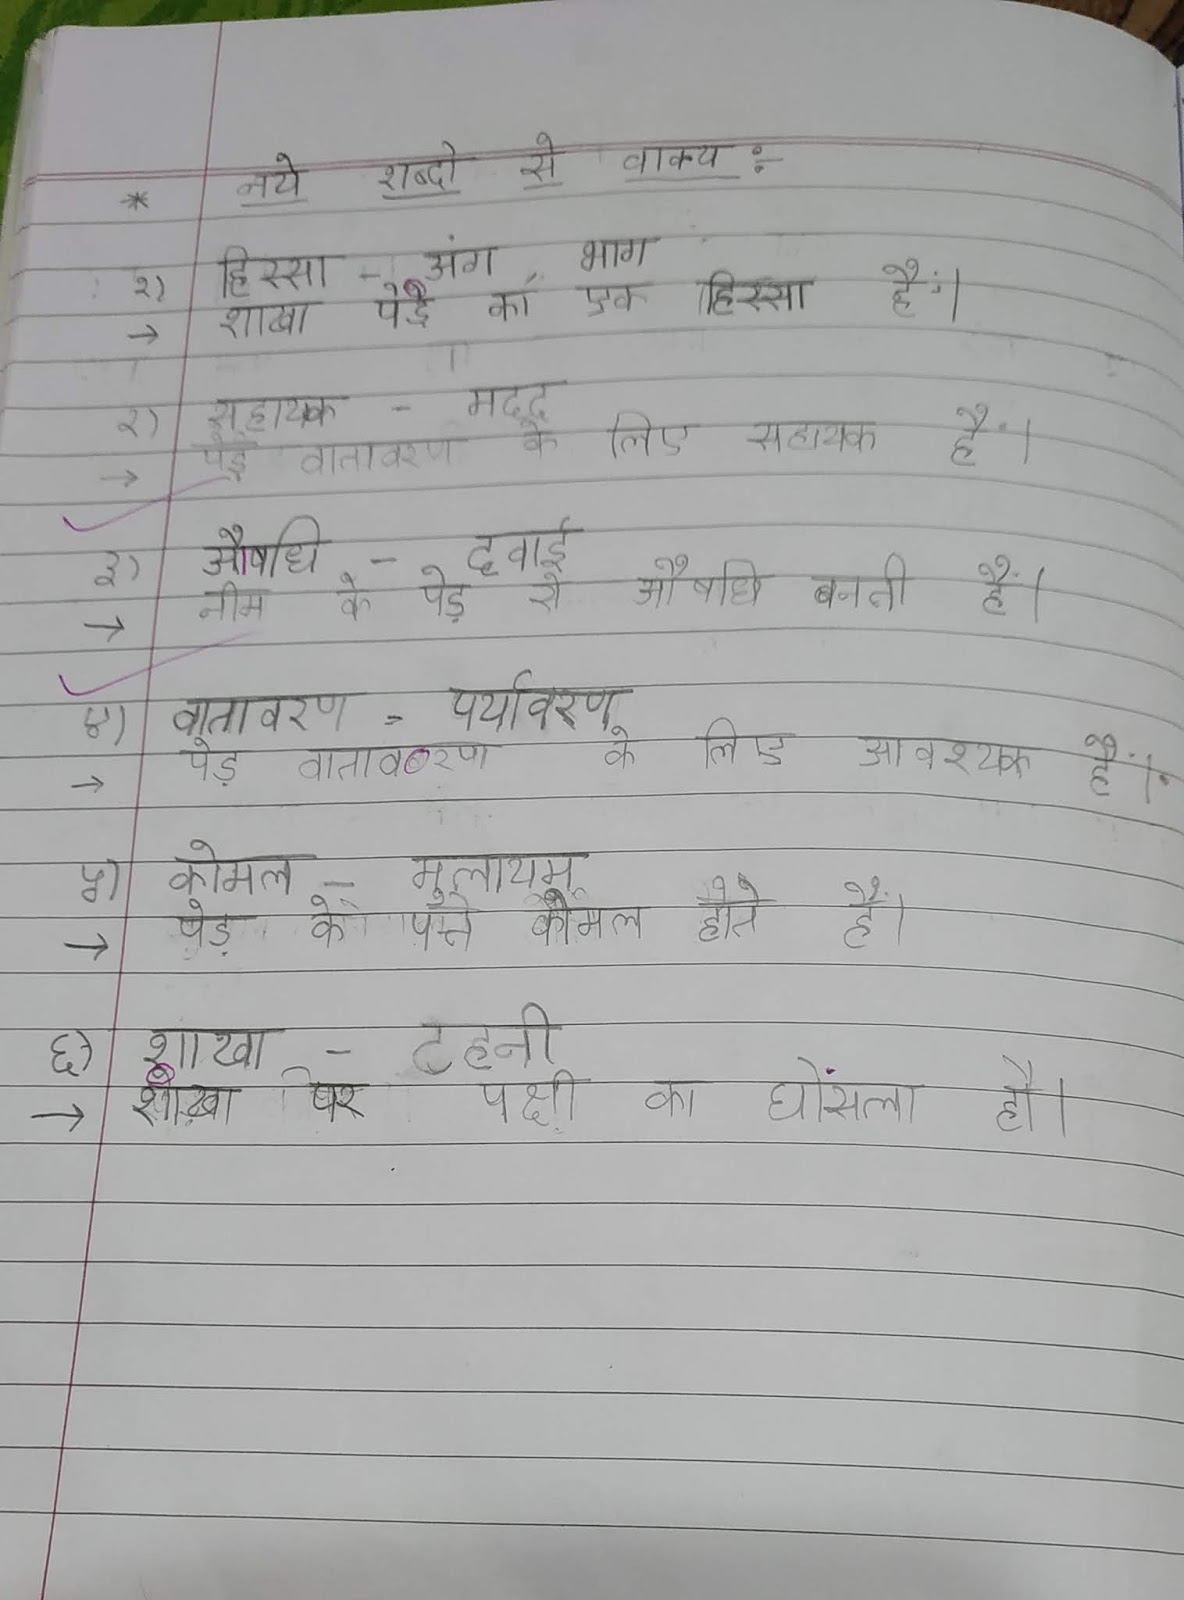 * नये शब्दो से वाक्य :-
१) हिस्सा - अंग, भाग
→ शाखा पेड़े का एक हिस्सा हैं।
२) सहायक - मदद
→ पेड़ वातावरण के लिए सहायक हैं।
३) औषधि - दवाई
→ नीम के पेड़ से औषधि बनती हैं।
४) वातावरण - पर्यावरण
→ पेड़ वातावरण के लिए आवश्यक हैं।
५) कोमल - मुलायम
→ पेड़ के पत्ते कोमल होते हैं।
६) शाखा - टहनी
→ शाखा पर पक्षी का घोंसला हौ।